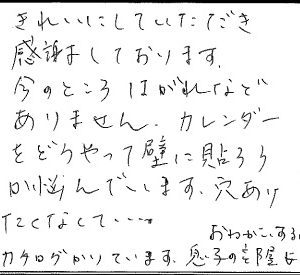 きれいにしていただき
感謝しております。
今のところ はがれなど
ありません。カレンダー
をどうやって壁に貼ろう
か悩んでいます。穴あけ
たくなくて・・・・
おわかい
カタログかりています。息子の部屋も